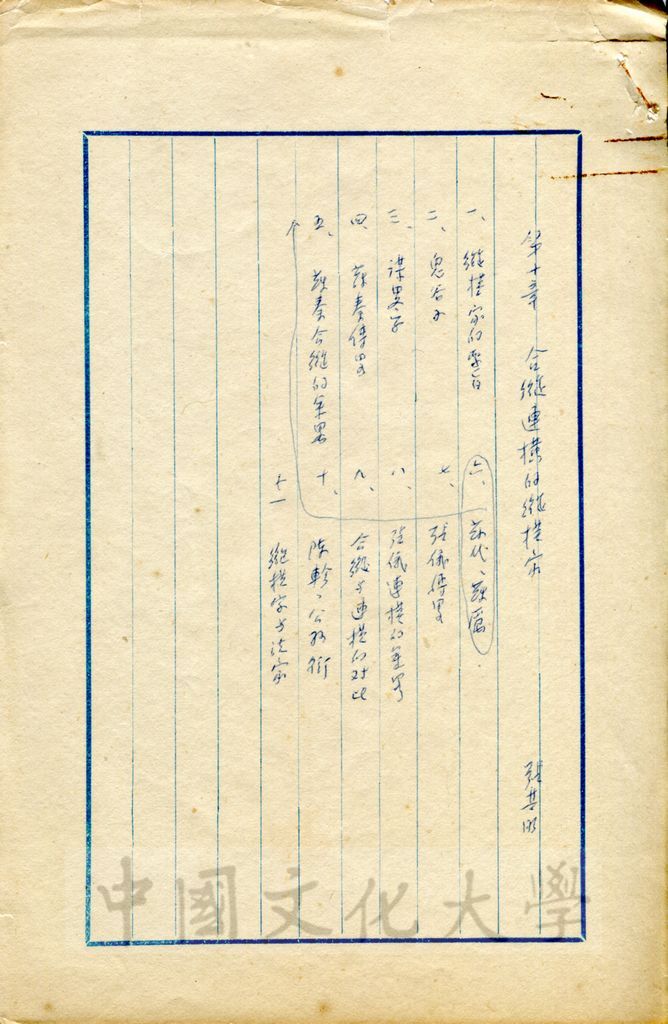 第十章　合縱連橫的縱橫家
張其昀
一、縱橫家的要旨
二、鬼谷子
三、
四、蘇秦傳略
五、蘇秦合縱的年畧
六、蘇代、蘇厲
七、張儀傳畧
八、張儀連橫的年畧
九、合縱与連橫的对比
十、陳軫、公孫衍
十一　縱橫家与法家
中國文化大學